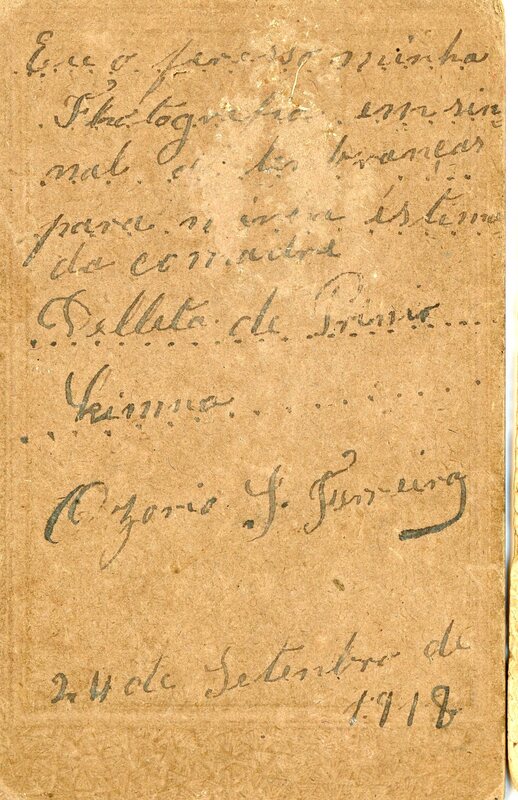 Eu o feresso minha
Fhotografia em sin
nal de lembranças
para minha estima
da comadre
Delleta de Primio
Ozorio S. Furreira
24 de Setenbro de
1918